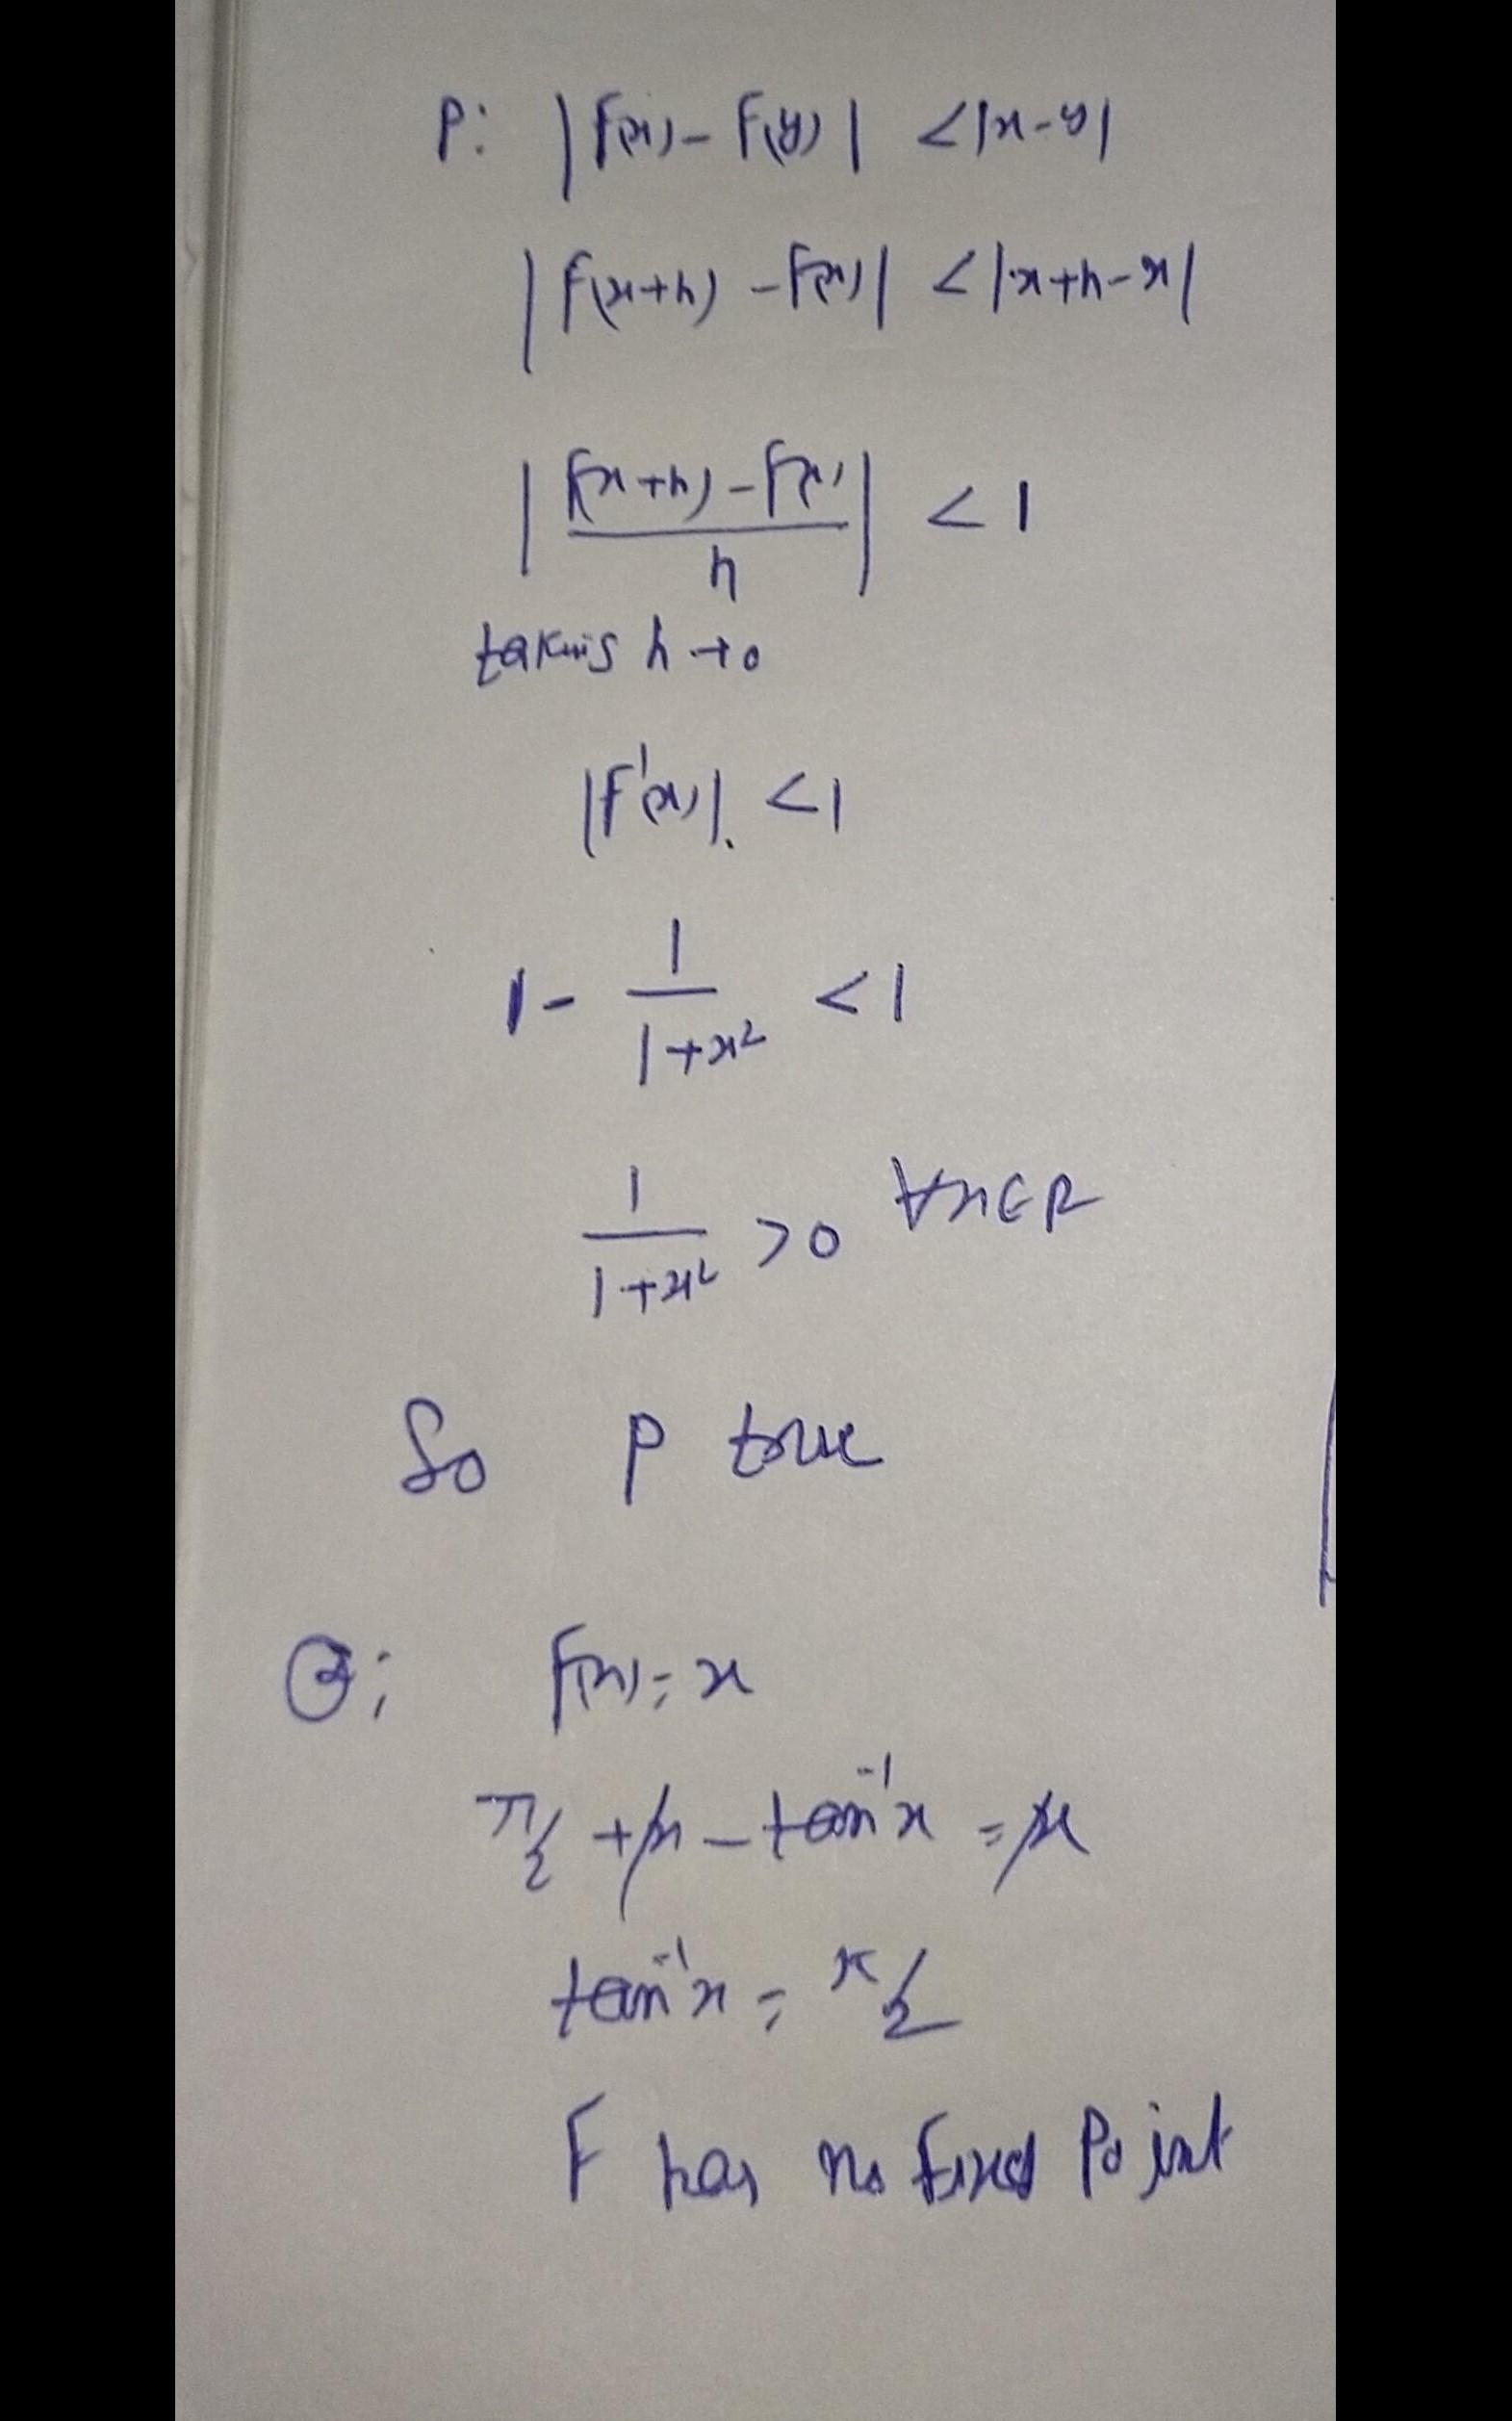 P: |f(x) - f(y)| < |x-y|
|f(x+h) - f(x)| < |x+h-x|
|(f(x+h) - f(x))/h| < 1
taking h→0
|f'(x)| < 1
1 - 1/(1+x²) < 1
1/(1+x²) > 0 ∀x∈R
So P true
Q: f(x) = x
π/2 + x - tan⁻¹x = x
tan⁻¹x = π/2
F has no fixed Point